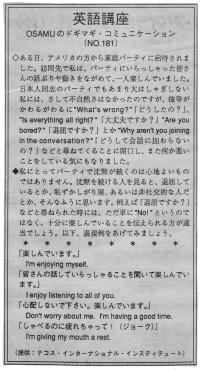 英語講座
OSAMUのドギマギ・コミュニケーション
(NO.181)
◇ある日、アメリカの方から家庭パーティに招待されま
した。訪問先で私は、パーティにいらっしゃった皆さ
んの話ぶりや動きをながめて、一人楽しんでいました。
日本人同志のパーティでもあまり大はしゃぎしない
私には、さして不自然さはなかったのですが、彼等が
かわるがわるに"What's wrong?"「どうしたの?」、
"Is everything all right?"「大丈夫ですか?」"Are you
bored?"「退屈ですか?」とか"Why aren't you joining
in the conversation?"「どうして会話に加わらない
の?」などと尋ねてくることに閉口し、また何か悪い
ことをしている気にもなりました。
◆私にとってパーティで沈黙が続くのは心地よいもの
ではありません。沈黙を続ける人を見ると、退屈して
いるとか、恥ずかしがり屋、あるいは非社交的な人だ
とか、そんなふうに思います。例えば「退屈ですか?」
などと尋ねられた時には、ただ単に"No!"というので
はなく、十分に楽しんでいることを伝えられる方が適
当でしょう。以下、表現例をあげてみましょう。
* * * * * * * *
「楽しんでいます。」
I'm enjoying myself.
「皆さんの話していらっしゃることを聞いて楽しんで
います。」
I enjoy listening to all of you.
「心配しないで下さい。楽しんでいます。」
Don't worry about me. I'm having a good time.
「しゃべるのに疲れちゃって!(ジョーク)」
I'm giving my mouth a rest.
(提供:テコス・インターナショナル・インスティテュート)